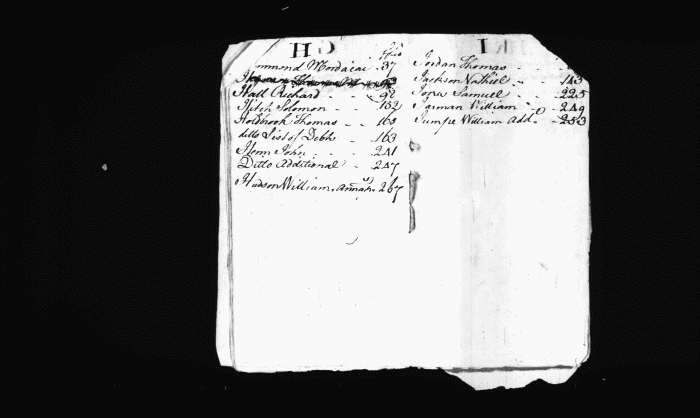 H G
folio
mmond Mordacai - 37
Hall Richard - 92
Hitch Solomon - - 132
Holbrook Thomas - - 163
ditto List of Debts - 163
Henn John - - - 241
Ditto Additional - 247
Hudson William, Annah - 267
K I
Jordan Thomas - -
Jackson Nathiel - - 143
Jones Samuel - - 225
Jarman William - - 249
Jumpe William Add - 253